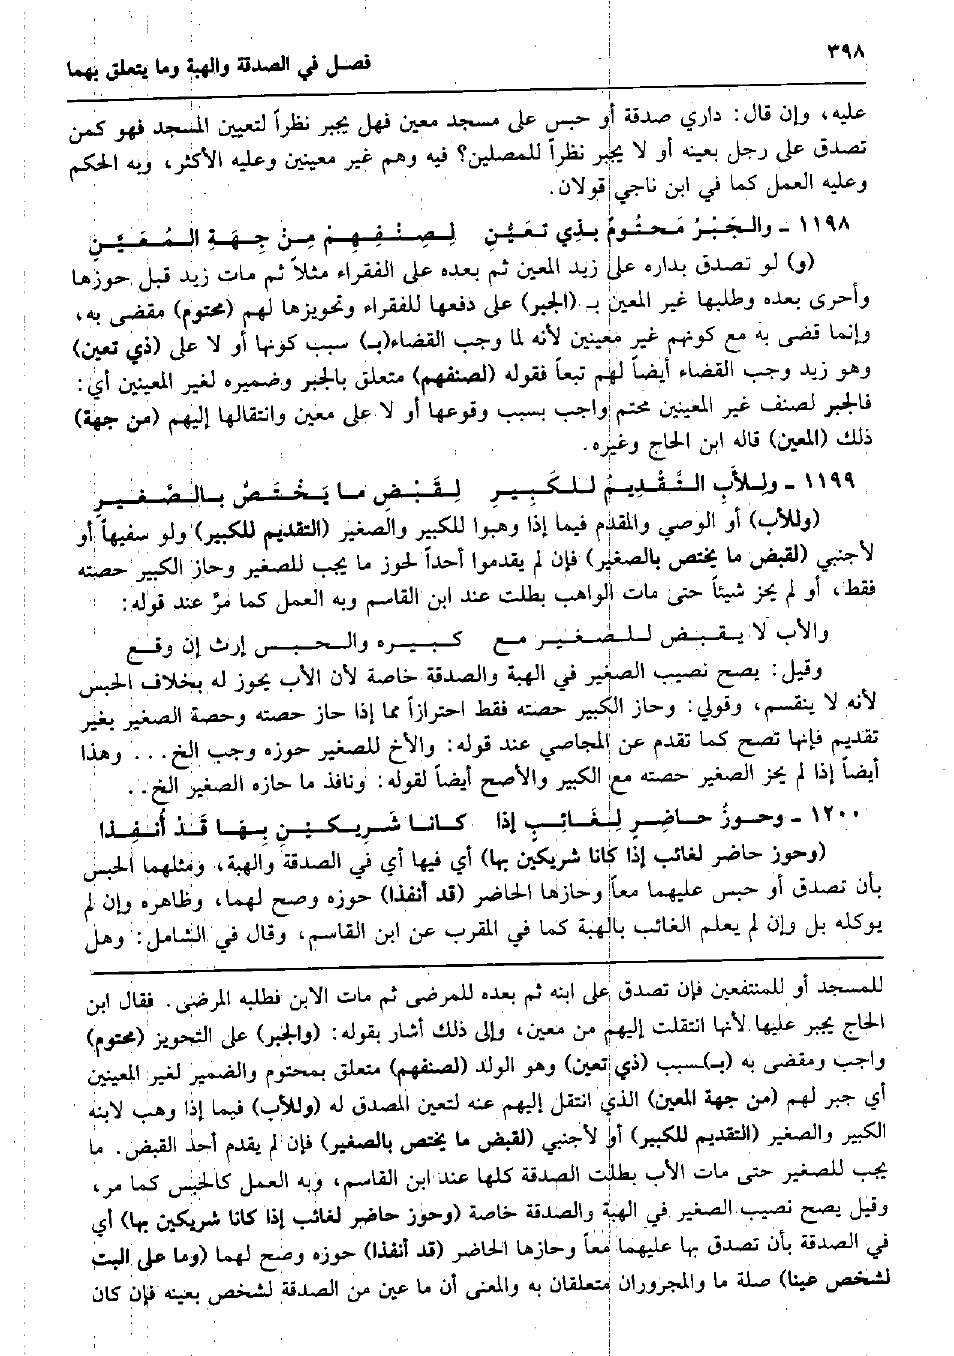 ٣٩٨
فصل في الصدقة والهبة وما يتعلق بهما
عليه، وإن قال: داري صدقة أو حبس على مسجد معين فهل يجبر نظراً لتعيين المسجد فهو كمن
تصدق على رجل بعينه أو لا يجبر نظراً للمصلين؟ فيه وهم غير معينين وعليه الأكثر، وبه الحكم
وعليه العمل كما في ابن ناجي قولان.
١١٩٨ - والجَبْرُ مَحتُومٌ بِذِي تعَيُّنِ لِصِنْفِهِمْ مِنْ جِهَةِ المُعَيَّنِ
(و) لو تصدق بداره على زيد المعين ثم بعده على الفقراء مثلاً ثم مات زيد قبل حوزها
وأحرى بعده وطلبها غير المعين بـ (الجبر) على دفعها للفقراء وتحويزها لهم (محتوم) مقضى به،
وإنما قضى به مع كونهم غير معينين لأنه لما وجب القضاء(بـ) سبب كونها أو لا على (ذي تعين)
وهو زيد وجب القضاء أيضاً لهم تبعاً فقوله (لصنفهم) متعلق بالجبر وضميره لغير المعينين أي:
فالجبر لصنف غير المعينين محتم واجب بسبب وقوعها أو لا على معين وانتقالها إليهم (من جهة)
ذلك (المعين) قاله ابن الحاج وغيره.
١١٩٩ - وللأَبِ التَّقْدِيمُ للكَبِيرِ لِقَبْضِ ما يَخْتَصُّ بالصَّغيرِ
(وللأب) أو الوصي والمقدم فيما إذا وهبوا للكبير والصغير (التقديم للكبير) ولو سفيهاً أو
لأجنبي (لقبض ما يختص بالصغير) فإن لم يقدموا أحداً لحوز ما يجب للصغير وحاز الكبير حصته
فقط، أو لم يحز شيئاً حتى مات الواهب بطلت عند ابن القاسم وبه العمل كما مرَّ عند قوله:
والأب لا يقبض للصغير مع كبيره والحبس إرث إن وقع
وقيل: يصح نصيب الصغير في الهبة والصدقة خاصة لأن الأب يحوز له بخلاف الحبس
لأنه لا ينقسم، وقولي: وحاز الكبير حصته فقط احترازاً مما إذا حاز حصته وحصة الصغير بغير
تقديم فإنها تصح كما تقدم عن المجاصي عند قوله: والأخ للصغير حوزه وجب الخ... وهذا
أيضاً إذا لم يحز الصغير حصته مع الكبير والأصح أيضاً لقوله: ونافذ ما حازه الصغير الخ..
١٢٠٠ - وحوزُ حاضِرٍ لِغَائِبٍ إذا كانا شَرِيكَيْنِ بِهَا قَدْ أُنفِذا
(وحوز حاضر لغائب إذا كانا شريكين بها) أي فيها أي في الصدقة والهبة، ومثلهما الحبس
بأن تصدق أو حبس عليهما معاً وحازها الحاضر (قد أنفذا) حوزه وصح لهما، وظاهره وإن لم
يوكله بل وإن لم يعلم الغائب بالهبة كما في المقرب عن ابن القاسم، وقال في الشامل: وهل
للمسجد أو للمنتفعين فإن تصدق على ابنه ثم بعده للمرضى ثم مات الابن فطلبه المرضى. فقال ابن
الحاج يجبر عليها لأنها انتقلت إليهم من معين، وإلى ذلك أشار بقوله: (والجبر) على التحويز (محتوم)
واجب ومقضى به (بـ)سبب (ذي تعين) وهو الولد (لصنفهم) متعلق بمحتوم والضمير لغير المعينين
أي جبر لهم (من جهة المعين) الذي انتقل إليهم عنه لتعين المصدق له (وللأب) فيما إذا وهب لابنه
الكبير والصغير (التقديم للكبير) أو لأجنبي (لقبض ما يختص بالصغير) فإن لم يقدم أحد القبض. ما
يجب للصغير حتى مات الأب بطلت الصدقة كلها عند ابن القاسم، وبه العمل كالحبس كما مر،
وقيل يصح نصيب الصغير في الهبة والصدقة خاصة (وحوز حاضر لغائب إذا كانا شريكين بها) أي
في الصدقة بأن تصدق بها عليهما معاً وحازها الحاضر (قد أنفذا) حوزه وصح لهما (وما على البت
لشخص عينا) صلة ما والمجروران متعلقان به والمعنى أن ما عين من الصدقة لشخص بعينه فإن كان